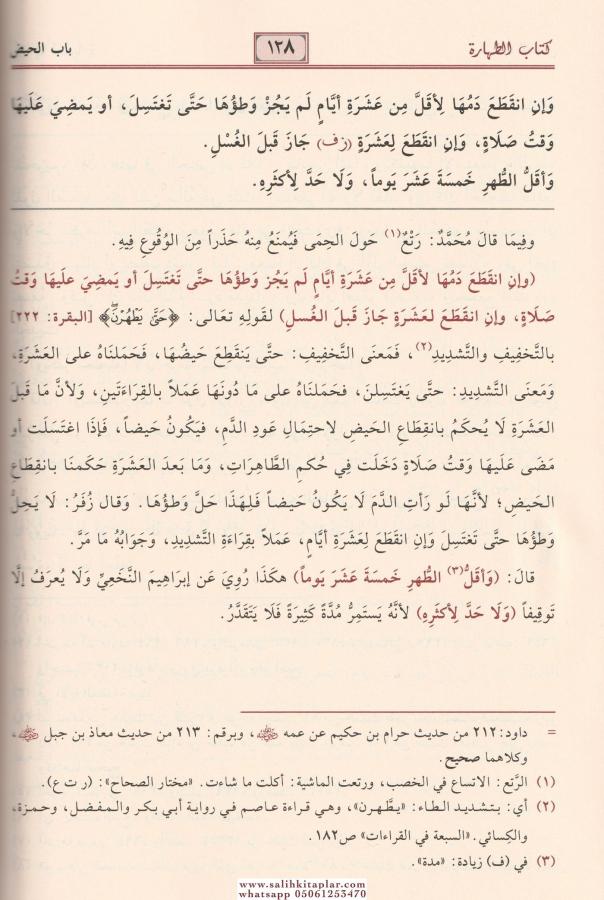 كتاب الطهارة ١٢٨ باب الحيض
وَإنِ انقَطَعَ دَمُهَا لِأقَلَّ مِن عَشَرَةِ أيَّامٍ لَم يَجُزْ وَطؤُهَا حَتَّى تَغتَسِلَ، أو يَمضِيَ عَلَيهَا
وَقتُ صَلَاةٍ، وَإنِ انقَطَعَ لِعَشَرَةٍ (زف) جَازَ قَبلَ الغُسْلِ.
وَأقَلُّ الطُّهرِ خَمسَةَ عَشَرَ يَوماً، وَلَا حَدَّ لِأكثَرِهِ.
وفِيمَا قالَ مُحَمَّدٌ: رَتْعٌ(١) حَولَ الحِمَى فَيُمنَعُ مِنهُ حَذَراً مِنَ الوُقُوعِ فِيهِ.
(وإنِ انقَطَعَ دَمُهَا لأقَلَّ مِن عَشَرَةِ أيَّامٍ لَم يَجُز وَطؤُهَا حتَّى تَغتَسِلَ أو يَمضِيَ علَيهَا وَقتُ
صَلَاةٍ، وإنِ انقَطَعَ لعَشَرَةٍ جَازَ قَبلَ الغُسلِ) لقَولِهِ تعَالى: ﴿حَتَّىٰ يَطْهُرْنَ﴾ [البقرة: ٢٢٢]
بالتَّخفِيفِ والتَّشدِيدِ(٢)، فَمَعنَى التَّخفِيفِ: حتَّى يَنقَطِعَ حَيضُهَا، فَحَمَلنَاهُ على العَشَرَةِ،
وَمَعنَى التَّشدِيدِ: حتَّى يَغتَسِلنَ، فحَمَلنَاهُ على مَا دُونَهَا عَمَلاً بالقِرَاءَتَينِ، وَلأنَّ مَا قَبلَ
العَشَرَةِ لَا يُحكَمُ بانقِطَاعِ الحَيضِ لاحتِمَالِ عَودِ الدَّمِ، فيَكُونُ حَيضاً، فَإذَا اغتَسَلَت أو
مَضَى عَلَيهَا وَقتُ صَلَاةٍ دَخَلَت فِي حُكمِ الطَّاهِرَاتِ، وَمَا بَعدَ العَشَرَةِ حَكَمنَا بانقِطَاعِ
الحَيضِ؛ لأنَّهَا لَو رَأتِ الدَّمَ لَا يَكُونُ حَيضاً فَلِهَذَا حَلَّ وَطؤُهَا. وَقال زُفَرُ: لَا يَحِلُّ
وَطؤُهَا حتَّى تَغتَسِلَ وَإنِ انقَطَعَ لِعَشَرَةِ أيَّامٍ، عَمَلاً بقِرَاءَةِ التَّشدِيدِ، وَجَوَابُهُ مَا مَرَّ.
قالَ: (وَأقَلُّ(٣) الطُّهرِ خَمسَةَ عَشَرَ يَوماً) هكَذَا رُوِيَ عَن إبرَاهِيمَ النَّخَعِيِّ وَلَا يُعرَفُ إلَّا
تَوقِيفاً (وَلَا حَدَّ لِأكثَرِهِ) لأنَّهُ يَستَمِرُّ مُدَّةً كَثِيرَةً فَلَا يَتَقَدَّرُ.
= داود: ٢١٢ من حديث حرام بن حكيم عن عمه رضي الله عنه، وبرقم: ٢١٣ من حديث معاذ بن جبل رضي الله عنه،
وكلاهما صحيح.
(١) الرَّتع: الاتساع في الخصب، ورتعت الماشية: أكلت ما شاءت. «مختار الصحاح»: (ر ت ع).
(٢) أي: بتشديد الطاء: «يطَّهرن»، وهي قراءة عاصم في رواية أبي بكر والمفضل، وحمزة،
والكِسائي. «السبعة في القراءات» ص١٨٢.
(٣) في (ف) زيادة: «مدة».
www.salihkitaplar.com
whatsapp 05061253470